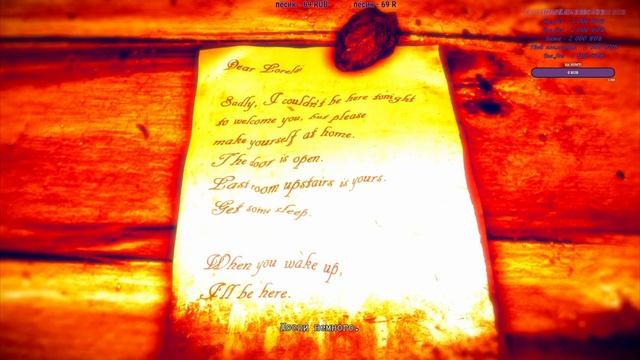 песик - 69 RUB песик - 69 R
Dear Lorelei
Sadly, I couldn't be here tonight
to welcome you, but please
make yourself at home.
The door is open.
Last room upstairs is yours.
Get some sleep.
When you wake up,
I'll be here.
Поспи немного.